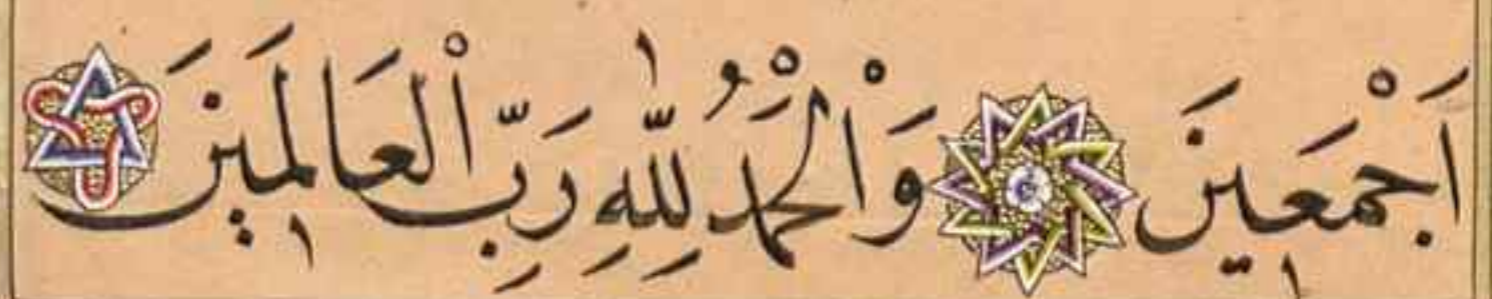 اَجْمَعٖينَ وَالْحَمْدُ لِلّٰهِ رَبِّ الْعَالَمٖينَ